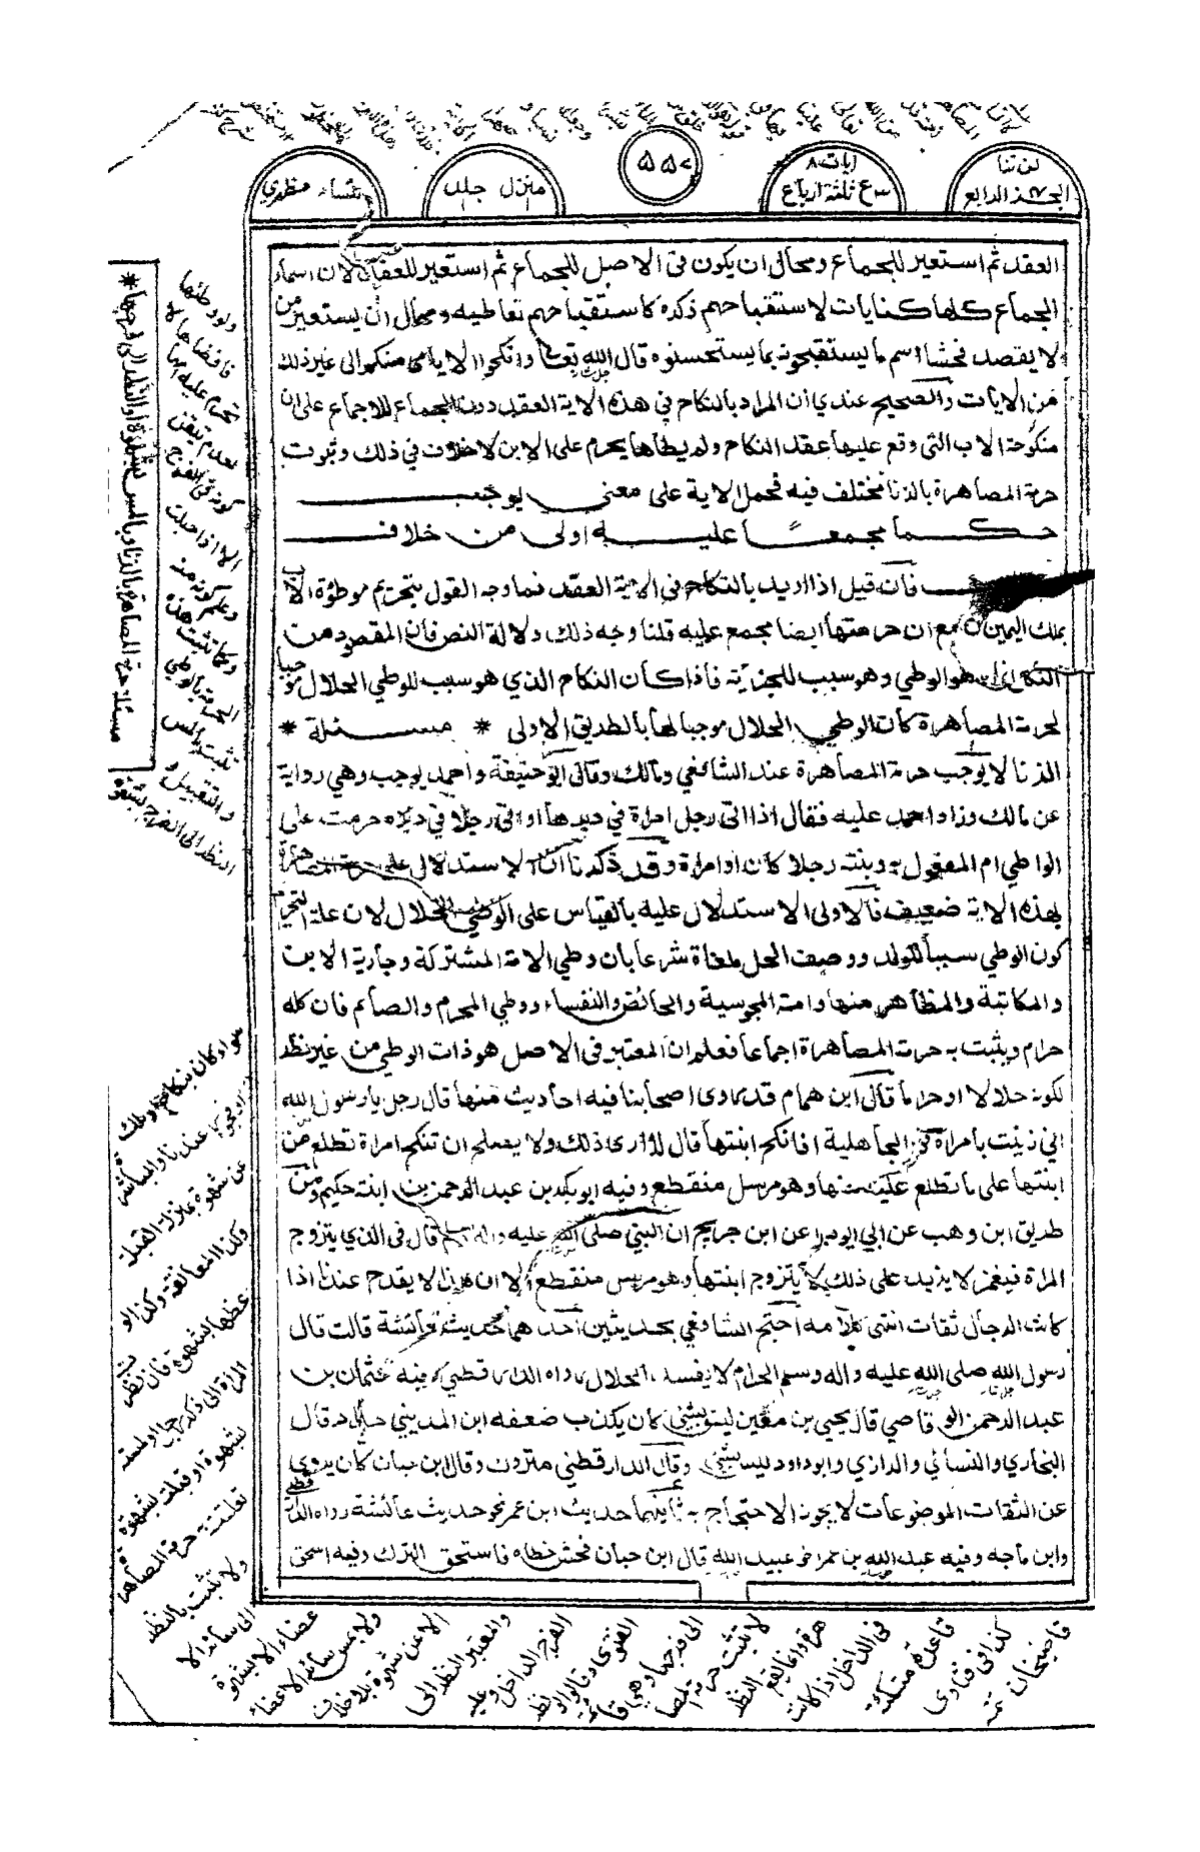 لن تنا
الجزء الرابع
ايات ٨
ع ثلثة ارباع
٥٥٧
منزل جلد ١
نساء مظهري
العقد ثم استعير للجماع ومحال ان يكون فى الاصل للجماع ثم استعير للعقد لان اسماء
الجماع كلها كنايات لاستقباحهم ذكره كاستقباحهم تعاطيه ومحال أن يستعير من
لا يقصد فحشا اسم ما يستقبحونه بما يستحسنونه قال الله تعا وانكحوا الايامى منكم الى غير ذلك
من الايات والصحيح عندي أن المراد بالنكاح في هذه الاية العقد دون الجماع للاجماع على ان
منكوحة الاب التى وقع عليها عقد النكاح ولم يطأها يحرم على الابن لا خلاف في ذلك وثبوت
حرمة المصاهرة بالزنا مختلف فيه فحمل الاية على معنى يوجب
حكما مجمعاً عليه اولى من خلافه
فان قيل اذا اريد بالنكاح فى الاية العقد فما وجه القول بتحريم موطؤة الاب
بملك اليمين مع ان حرمتها ايضا مجمع عليه قلنا وجه ذلك دلالة النص فان المقصود من
النكاح انما هو الوطي وهو سبب للجزئية فاذا كان النكاح الذي هو سبب للوطي الحلال موجبا
لحرمة المصاهرة كان الوطي الحلال موجبا لها بالطريق الاولى * مسئلة *
الزنا لا يوجب حرمة المصاهرة عند الشافعي ومالك وقال ابو حنيفة واحمد يوجب وهي رواية
عن مالك وزاد احمد عليه فقال اذا اتى رجل امراة في دبرها او اتى رجلا في دبره حرمت على
الواطي ام المفعول به وبنته رجلا كان او امراة وقد ذكرنا ان الاستدلال على حرمة المصاهرة
بهذه الاية ضعيف فالاولى الاستدلال عليه بالقياس على الوطي الحلال لان علة التحريم
كون الوطي سببا للولد ووصف الحل ملغاة شرعا بان وطي الامة المشتركة وجارية الابن
والمكاتبة والمظاهر منها وامته المجوسية والحائض والنفساء ووطي المحرم والصائم فان كله
حرام ويثبت به حرمة المصاهرة اجماعا فعلم ان المعتبر فى الاصل هو ذات الوطي من غير نظر
لكونه حلالا او حراما قال ابن همام قد روى اصحابنا فيه احاديث منها قال رجل يا رسول الله
اني زنيت بامراة في الجاهلية افانكح ابنتها قال لا ارى ذلك ولا يصلح ان تنكح امراة تطلع من
ابنتها على ما تطلع عليه منها وهو مرسل منقطع وفيه ابو بكر بن عبد الرحمن بن ابنة حكيم ومن
طريق ابن وهب عن ابي ايوب عن ابن جريج ان النبي صلى الله عليه واله وسلم قال فى الذي يتزوج
المراة فيغمز لا يزيد على ذلك لا يتزوج ابنتها وهو مرسل منقطع الا ان هذا لا يقدح عندنا اذا
كانت الرجال ثقات انتهى كلامه احتج الشافعي بحديثين احدهما حديث عائشة قالت قال
رسول الله صلى الله عليه واله وسلم الحرام لا يفسد الحلال رواه الدارقطني وفيه عثمان بن
عبد الرحمن الوقاصي قال يحيى بن معين ليس بشئ كان يكذب ضعفه ابن المديني جدا وقال
البخاري والنسائي والرازي وابو داود ليس بشئ وقال الدارقطني متروك وقال ابن حبان كان يروى
عن الثقات الموضوعات لا يجوز الاحتجاج به ثانيهما حديث ابن عمر نحو حديث عائشة رواه الدارقطني
وابن ماجه وفيه عبد الله بن عمر اخو عبيد الله قال ابن حبان فحش خطاه فاستحق الترك وفيه اسحق
مسئلة حرمة المصاهرة بالزنا وبالمس بشهوة او النظر الى فرجها *
ولو وطئها
فافضاها لا
تحرم عليه امها
لعدم تيقن
كونه فى الفرج
الا اذا حبلت
وعلم كونه منه
وكما تثبت هذه
الحرمة بالوطي
تثبت بالمس
والتقبيل و
النظر الى الفرج بشهوة
سواء كان بنكاح او ملك
او فجور عندنا والمباشرة
عن شهوة بمنزلة القبلة
وكذا المعانقة وكذا لو
عضها بشهوة فان نظرت
المراة الى ذكر رجل او لمسته
بشهوة او قبلته بشهوة
تعلقت به حرمة المصاهرة
ولا تثبت بالنظر
الى سائر الا
عضاء الا بشهوة
ولا بمس سائر الاعضاء
الا عن شهوة بلا خلاف
والمعتبر النظر الى
الفرج الداخل وعليه
الفتوى وقالوا لو نظر
الى فرجها وهي قائمة
لا تثبت حرمة المصا
هرة وانما يقع النظر
فى الداخل اذا كانت
قاعدة متكئة
كذا فى فتاوى
قاضيخان